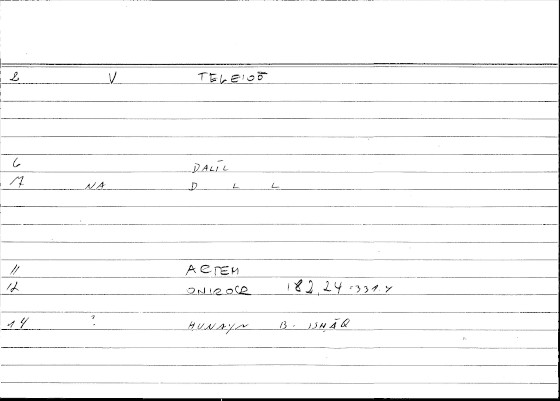 2 V TELEIOŌ
6 DALĪL
7 NA D L L
11 ARTEM
12 ONIROCR 182,24 = 331.4
14 ? HUNAYN B. ISHĀQ